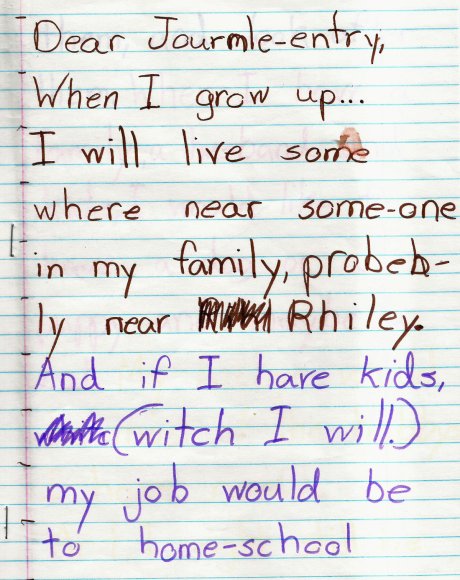 Dear Jourmle-entry,
When I grow up...
I will live some
where near some-one
in my family, probeb-
ly near Rhiley.
And if I have kids,
(witch I will.)
my job would be
to home-school